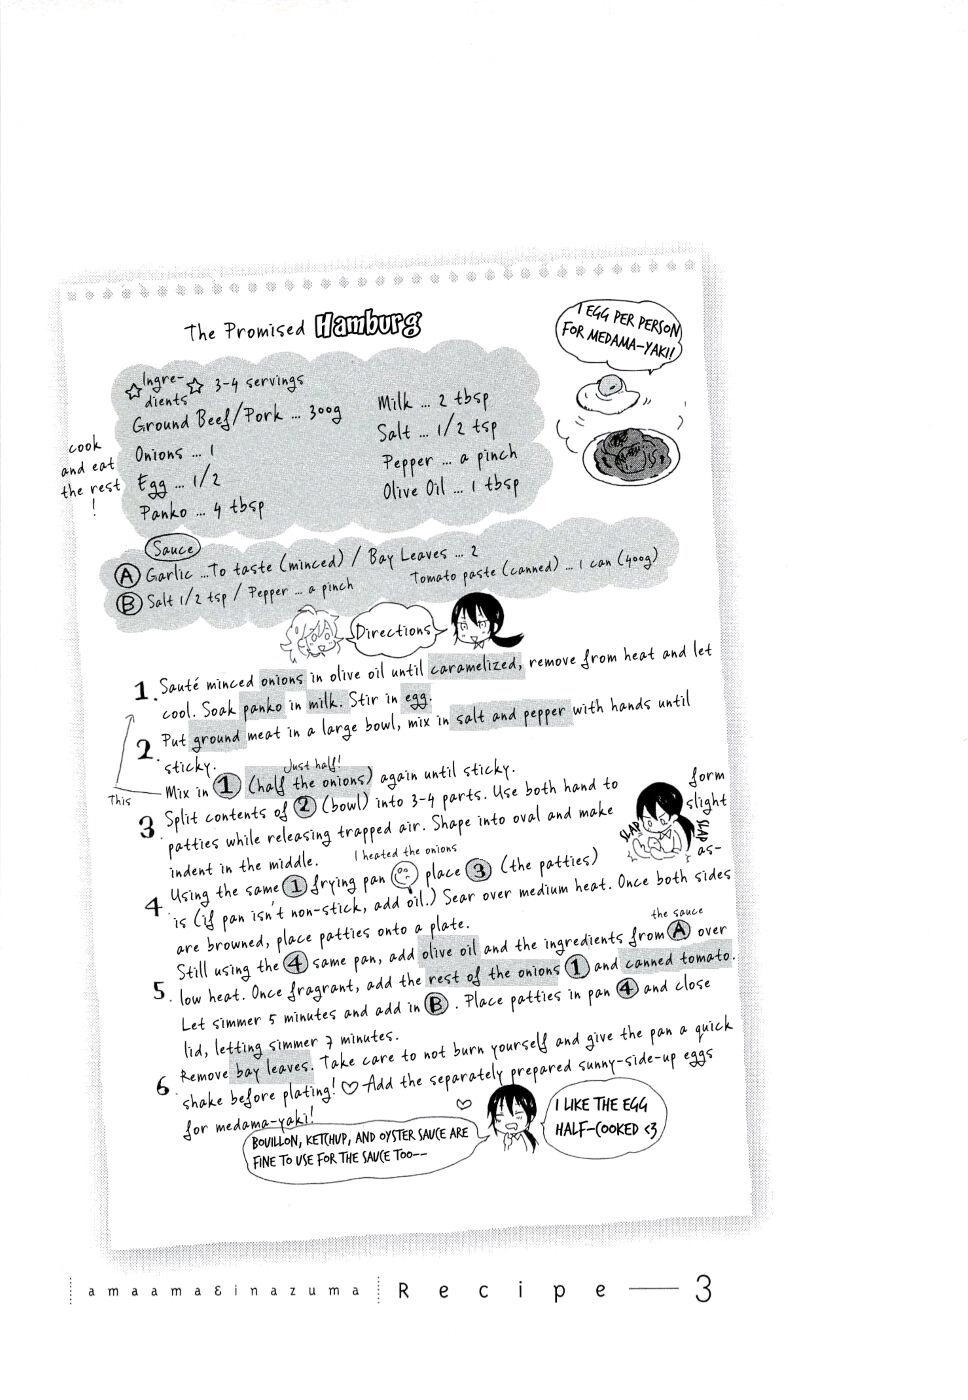 The Promised Hamburg
I EGG PER PERSON
FOR MEDAMA-YAKI!
Ingre-
dients
3-4 servings
Ground Beef/Pork ... 300g
Onions ... 1
Egg ... 1/2
Panko ... 4 tbsp
cook
and eat
the rest
!
Milk ... 2 tbsp
Salt ... 1/2 tsp
Pepper ... a pinch
Olive Oil ... 1 tbsp
Sauce
A Garlic ...To taste (minced) / Bay Leaves ... 2
B Salt 1/2 tsp / Pepper ... a pinch
Tomato paste (canned) ... 1 can (400g)
Directions
1. Sauté minced onions in olive oil until caramelized, remove from heat and let
cool. Soak panko in milk. Stir in egg.
2. Put ground meat in a large bowl, mix in salt and pepper with hands until
sticky.
Just half!
This
Mix in 1 (half the onions) again until sticky.
3. Split contents of 2 (bowl) into 3-4 parts. Use both hand to form
patties while releasing trapped air. Shape into oval and make slight
indent in the middle.
SLAP
SLAP
I heated the onions
4 Using the same 1 frying pan place 3 (the patties) as-
is (if pan isn't non-stick, add oil.) Sear over medium heat. Once both sides
are browned, place patties onto a plate.
the sauce
5. Still using the 4 same pan, add olive oil and the ingredients from A over
low heat. Once fragrant, add the rest of the onions 1 and canned tomato.
Let simmer 5 minutes and add in B. Place patties in pan 4 and close
lid, letting simmer 7 minutes.
6. Remove bay leaves. Take care to not burn yourself and give the pan a quick
shake before plating! ♡ Add the separately prepared sunny-side-up eggs
for medama-yaki!
BOUILLON, KETCHUP, AND OYSTER SAUCE ARE
FINE TO USE FOR THE SAUCE TOO--
I LIKE THE EGG
HALF-COOKED <3
amaama&inazuma Recipe — 3